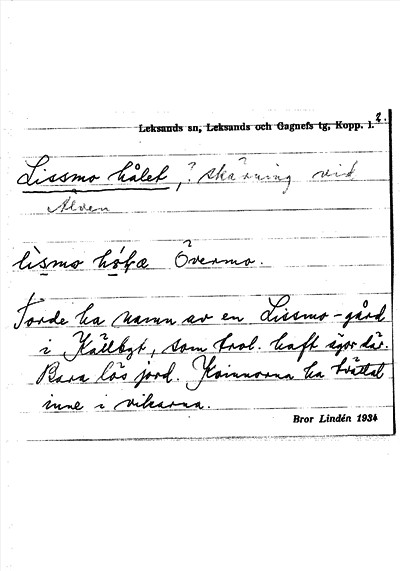 2.
Leksands sn, Leksands och Gagnefs tg, Kopp. l.
Lissmo hålet, ? skärning vid
Älven
lìsmo hó̜ḷæ Övermo.
Torde ha namn av en Lissmo-gård
i Källbyt, som trol. haft ägor där.
Bara lös jord. Kvinnorna ha tvättat
inne i vikarna.
Bror Lindén 1934